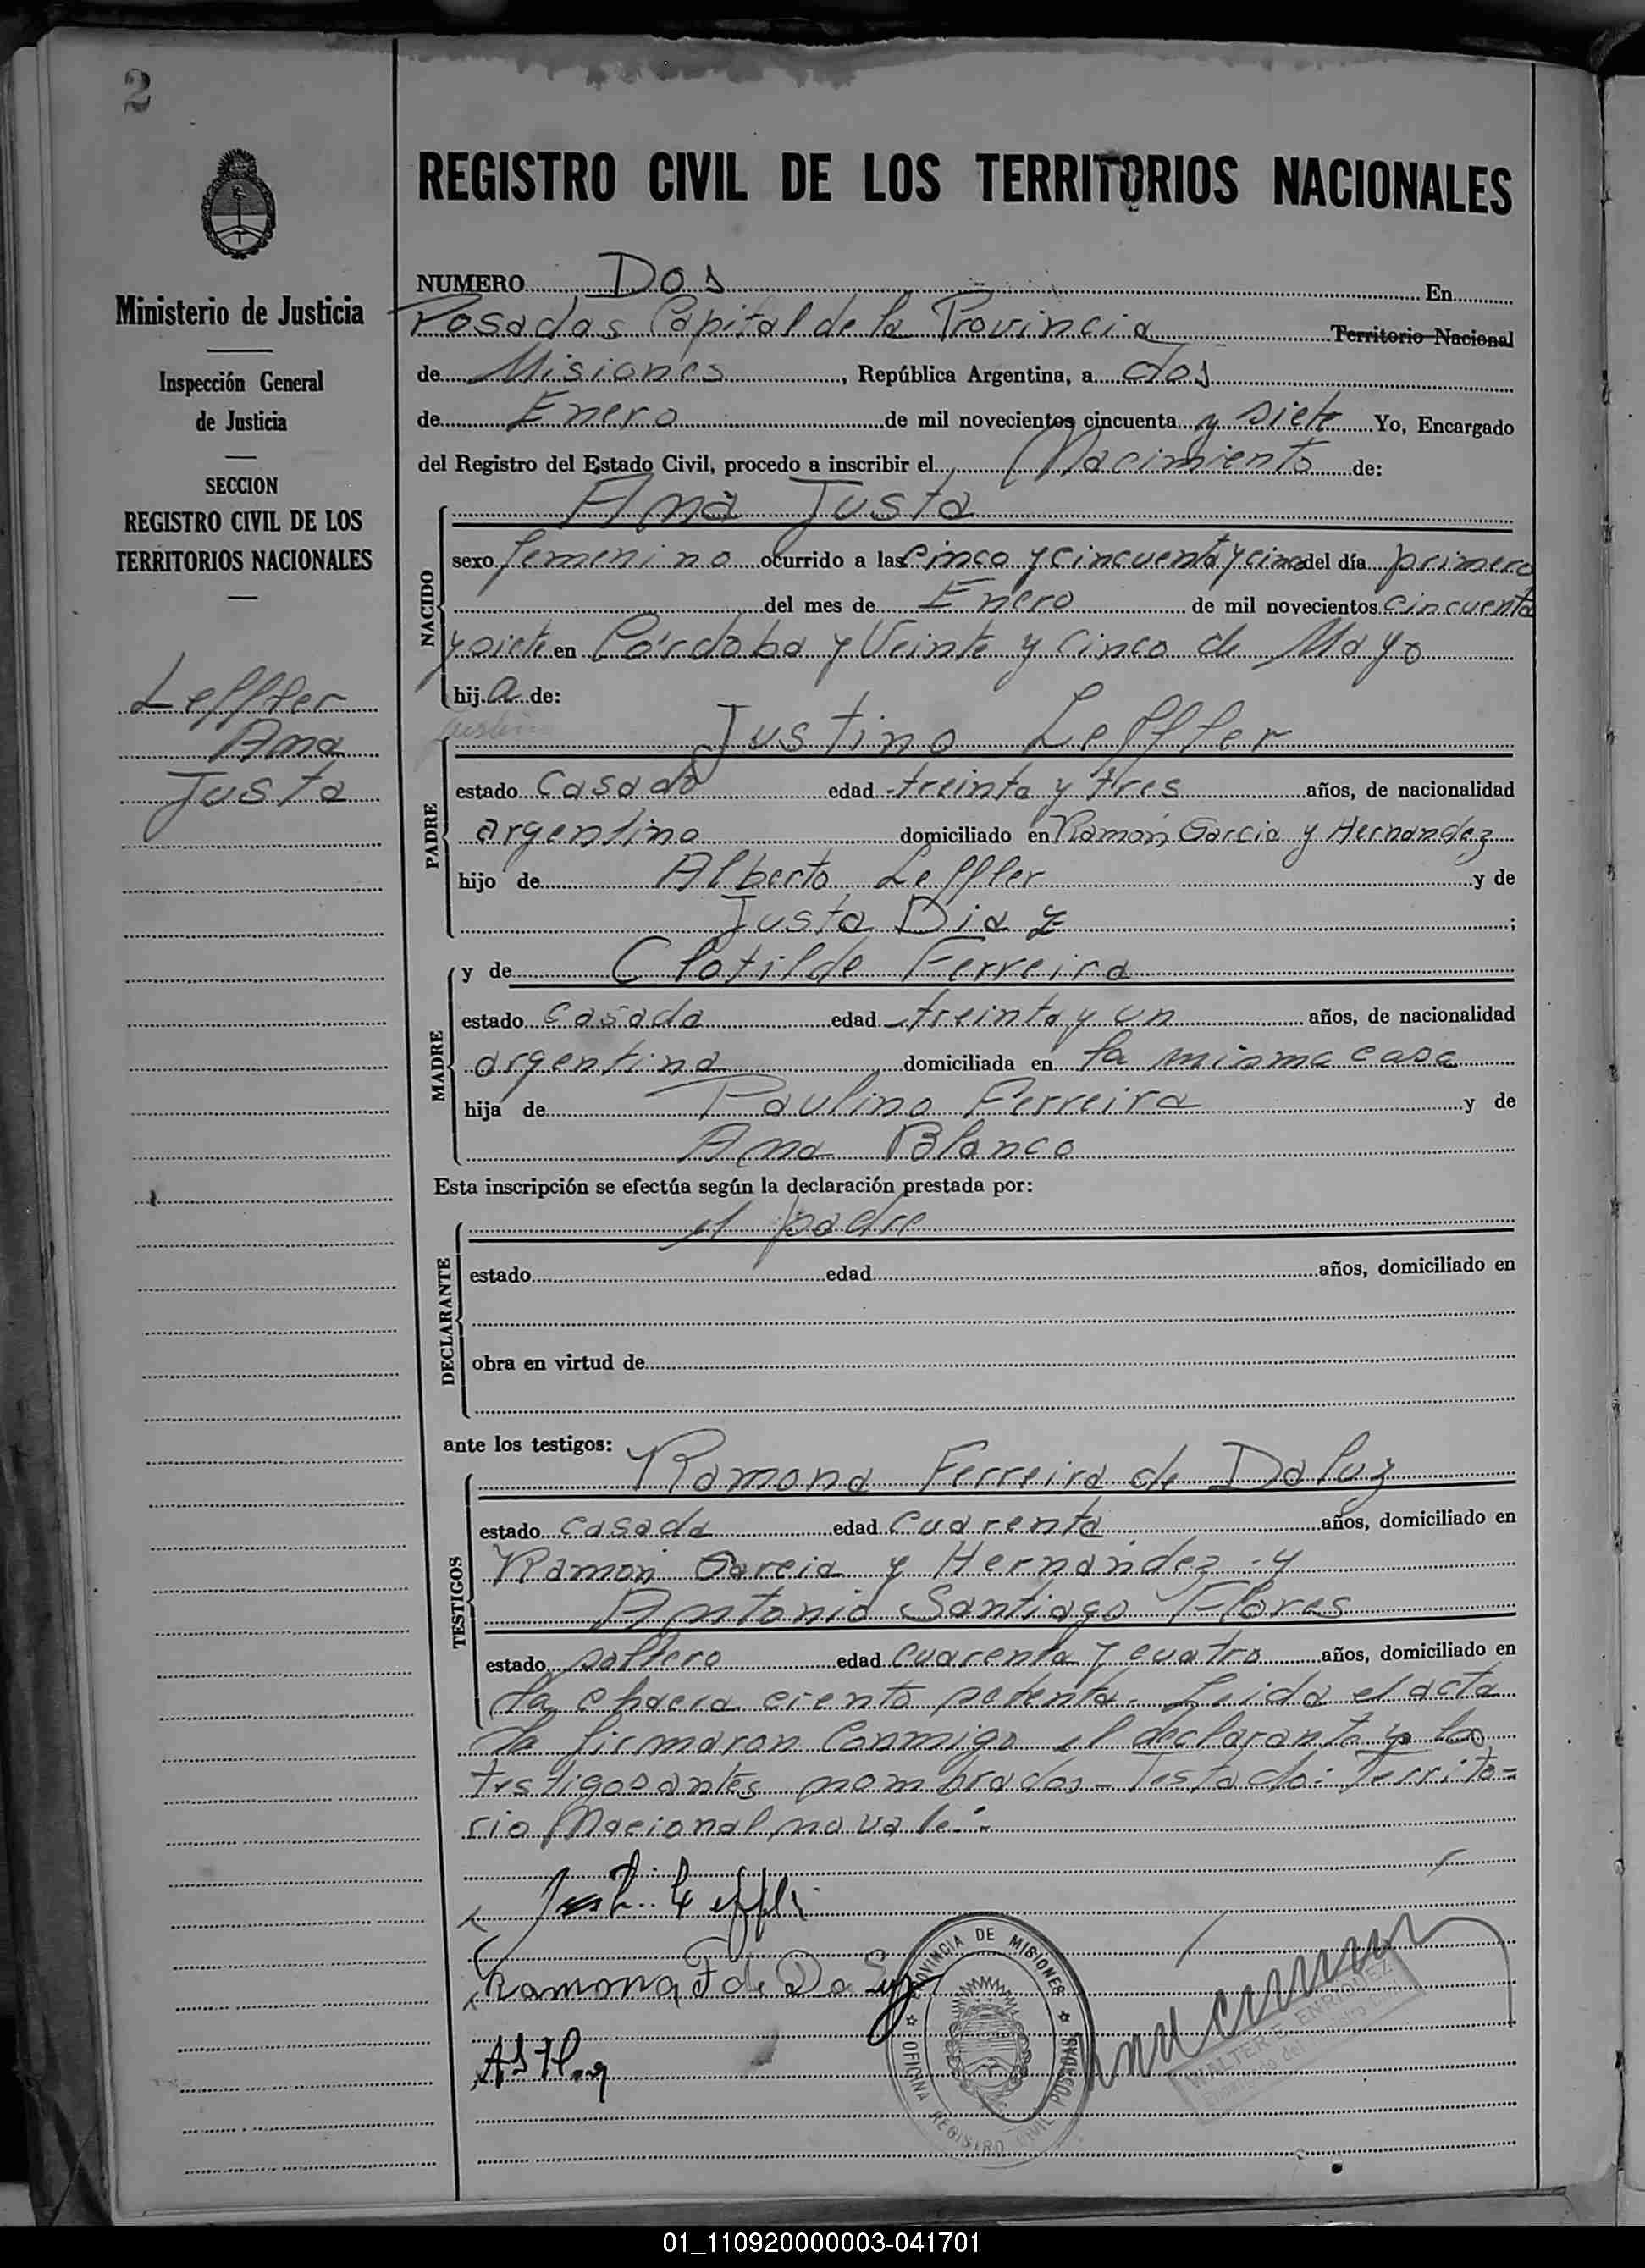 2
Ministerio de Justicia
Inspección General
de Justicia
SECCION
REGISTRO CIVIL DE LOS
TERRITORIOS NACIONALES
Leffler
Ana
Justa
REGISTRO CIVIL DE LOS TERRITORIOS NACIONALES
NUMERO Dos En
Posadas Capital de la Provincia Territorio Nacional
de Misiones, República Argentina, a dos
de Enero de mil novecientos cincuenta y siete Yo, Encargado
del Registro del Estado Civil, procedo a inscribir el Nacimiento de:
NACIDO
Ana Justa
sexo femenino ocurrido a las cinco y cincuenta y cinco del día primero
del mes de Enero de mil novecientos cincuenta
y siete en Córdoba y Veinte y Cinco de Mayo
hija de:
PADRE
Justino Leffler
estado casado edad treinta y tres años, de nacionalidad
argentino domiciliado en Ramón Garcia y Hernandez
hijo de Alberto Leffler y de
Justa Diaz;
MADRE
y de Clotilde Ferreira
estado casada edad treinta y un años, de nacionalidad
argentina domiciliada en la misma casa
hija de Paulino Ferreira y de
Ana Blanco
Esta inscripción se efectúa según la declaración prestada por:
DECLARANTE
el padre
estado edad años, domiciliado en
obra en virtud de
ante los testigos:
TESTIGOS
Ramona Ferreira de Da luz
estado casada edad cuarenta años, domiciliado en
Ramón Garcia y Hernández - y
Antonio Santiago Flores
estado soltero edad cuarenta y cuatro años, domiciliado en
la chacra ciento setenta. Leida el acta
la firmaron conmigo el declarante y los
testigos antes nombrados - Testado: Territo=
rio Nacional, no vale.-
Ramona F de Da Luz
PROVINCIA DE MISIONES
OFICINA REGISTRO CIVIL POSADAS
WALTER E. ENRIQUEZ
Encargado del Registro Civil
01_110920000003-041701